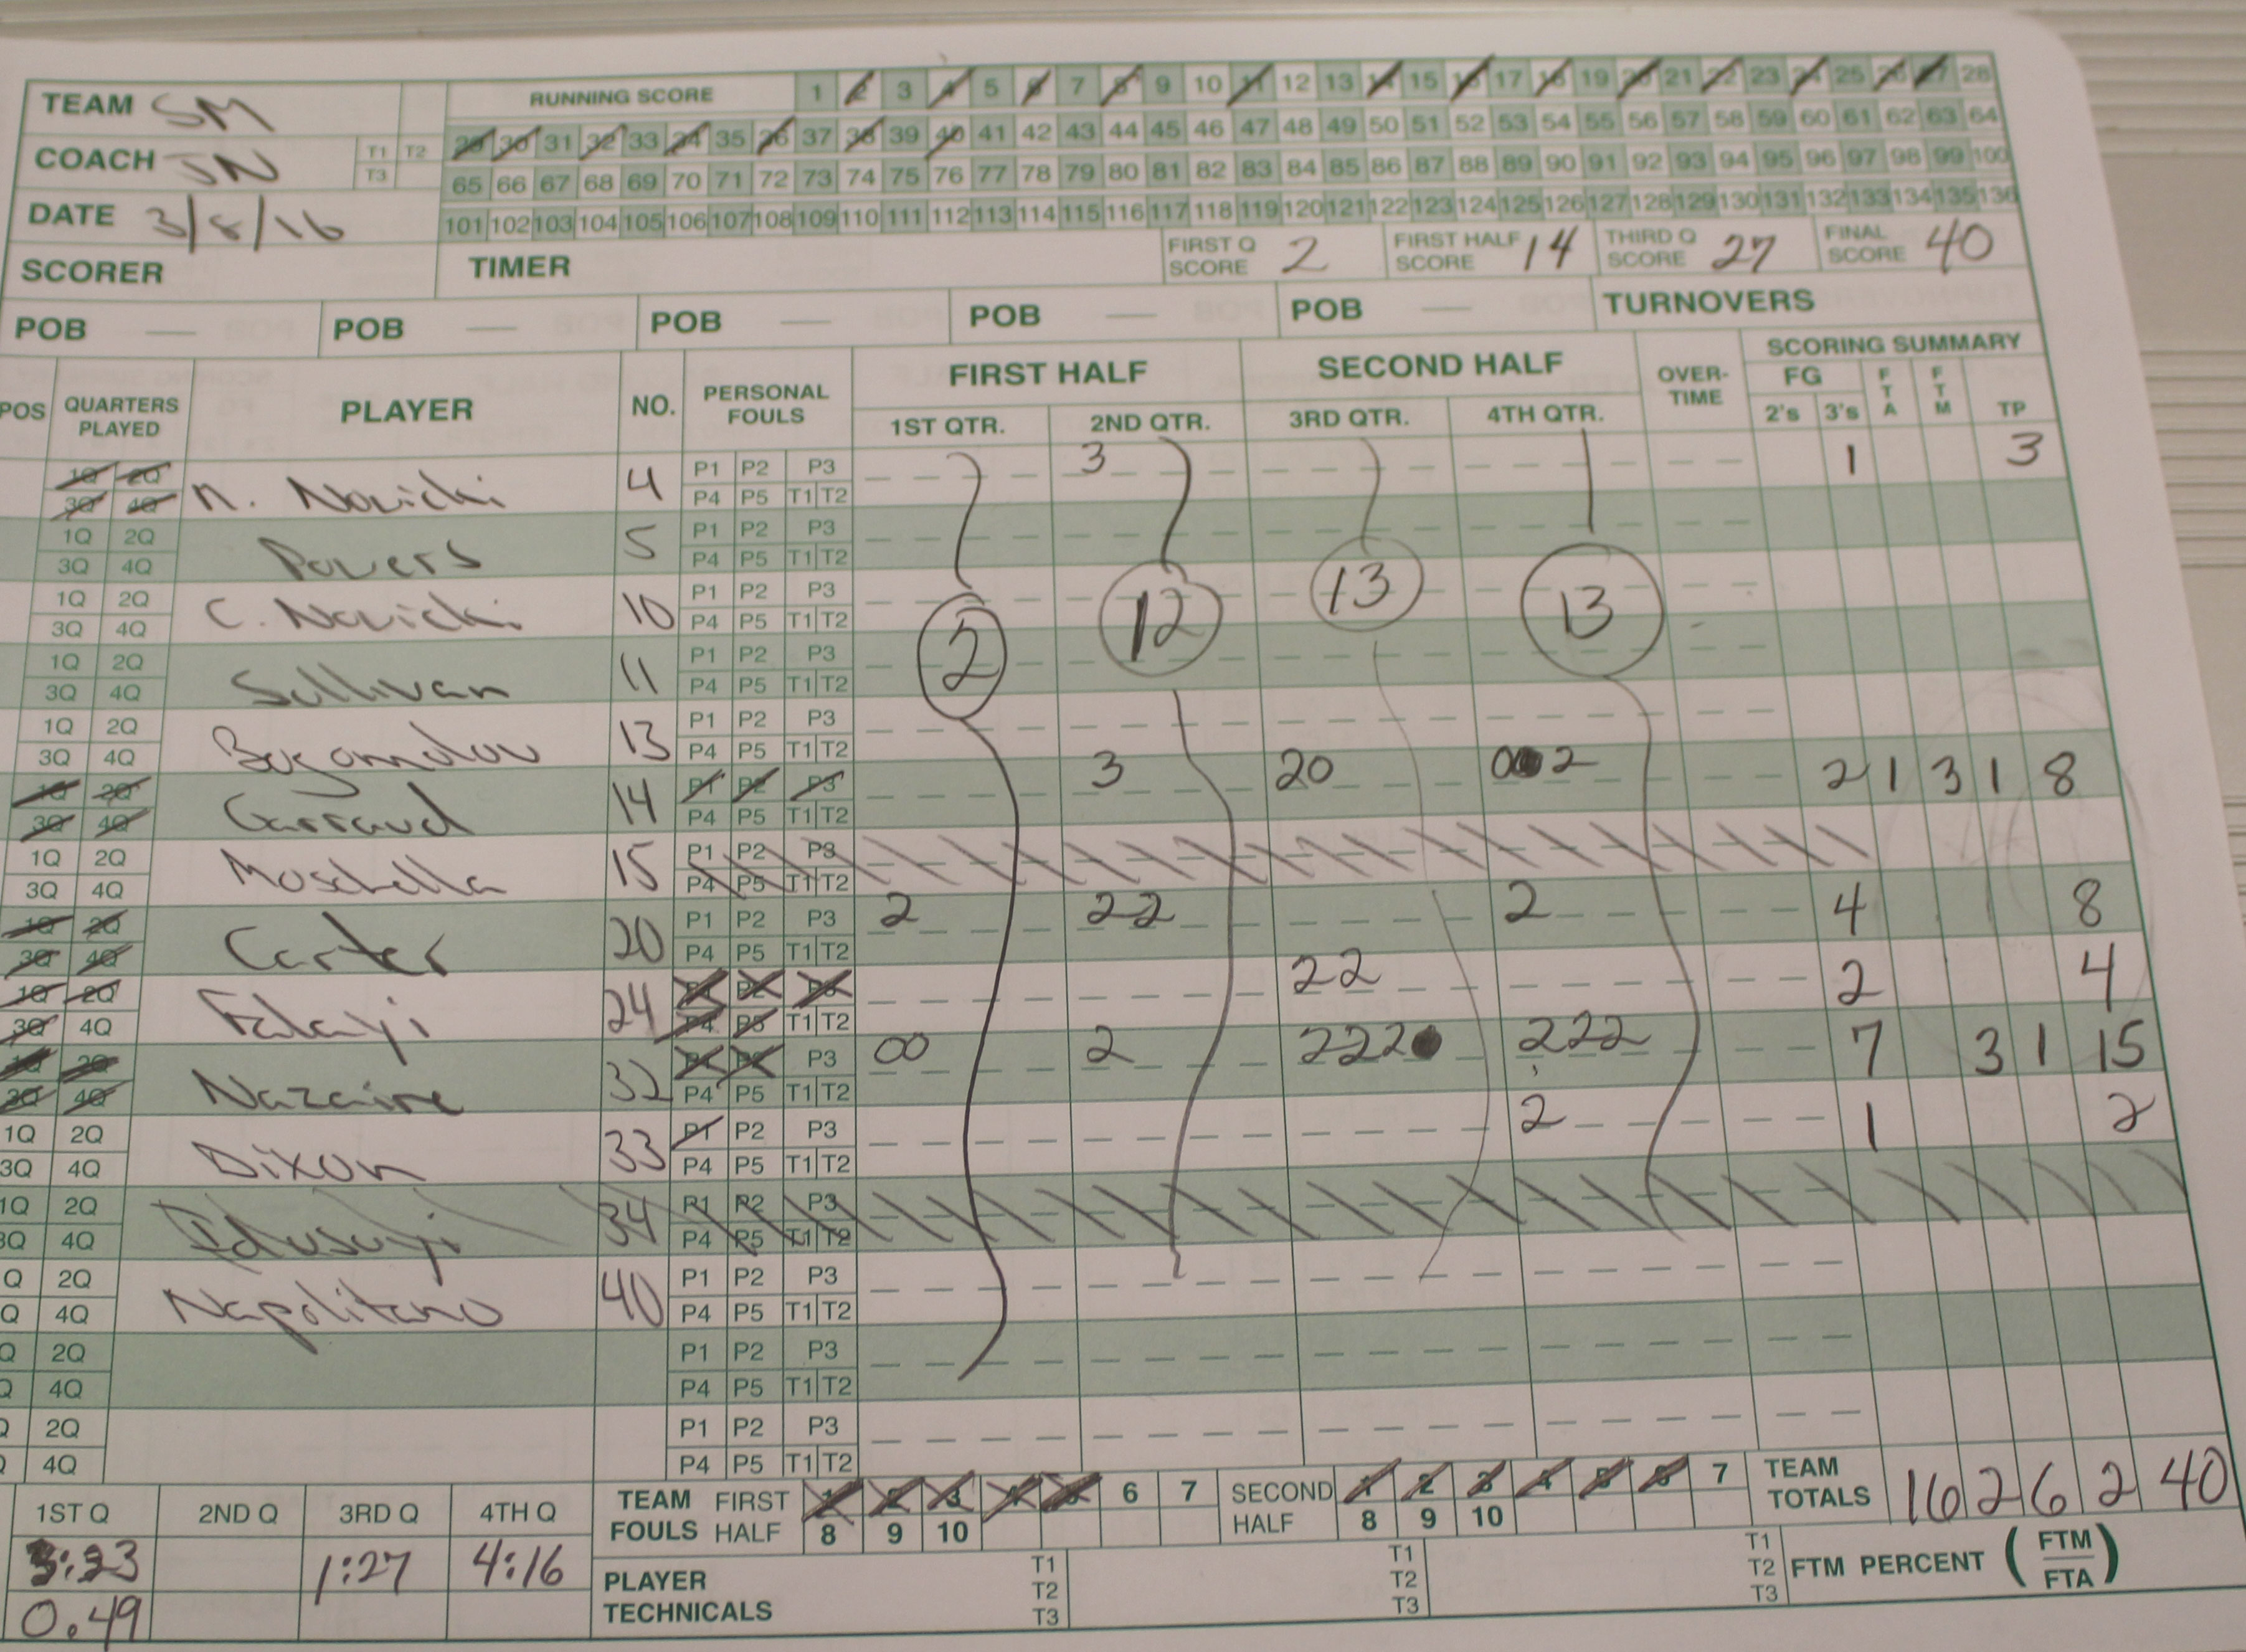 TEAM SM
COACH JN T1 T2 T3
DATE 3/8/16
SCORER
TIMER
RUNNING SCORE 1 2 3 4 5 6 7 8 9 10 11 12 13 14 15 16 17 18 19 20 21 22 23 24 25 26 27 28
29 30 31 32 33 34 35 36 37 38 39 40 41 42 43 44 45 46 47 48 49 50 51 52 53 54 55 56 57 58 59 60 61 62 63 64
65 66 67 68 69 70 71 72 73 74 75 76 77 78 79 80 81 82 83 84 85 86 87 88 89 90 91 92 93 94 95 96 97 98 99 100
101 102 103 104 105 106 107 108 109 110 111 112 113 114 115 116 117 118 119 120 121 122 123 124 125 126 127 128 129 130 131 132 133 134 135 136
FIRST Q SCORE 2 FIRST HALF SCORE 14 THIRD Q SCORE 27 FINAL SCORE 40
POB — POB — POB — POB — POB — TURNOVERS
POS QUARTERS PLAYED PLAYER NO. PERSONAL FOULS FIRST HALF SECOND HALF OVER-TIME SCORING SUMMARY
1ST QTR. 2ND QTR. 3RD QTR. 4TH QTR. FG 2's 3's FTA FTM TP
1Q 2Q 3Q 4Q N. Novicki 4 P1 P2 P3 P4 P5 T1 T2 3 1 3
1Q 2Q 3Q 4Q Powers 5 P1 P2 P3 P4 P5 T1 T2
1Q 2Q 3Q 4Q C. Novicki 10 P1 P2 P3 P4 P5 T1 T2
2 12 13 13
1Q 2Q 3Q 4Q Sullivan 11 P1 P2 P3 P4 P5 T1 T2
1Q 2Q 3Q 4Q Bogomolov 13 P1 P2 P3 P4 P5 T1 T2
1Q 2Q 3Q 4Q Garraud 14 P1 P2 P3 P4 P5 T1 T2 3 20 2 2 1 3 1 8
1Q 2Q 3Q 4Q Moschella 15 P1 P2 P3 P4 P5 T1 T2
1Q 2Q 3Q 4Q Carter 20 P1 P2 P3 P4 P5 T1 T2 2 22 2 4 8
1Q 2Q 3Q 4Q Falayi 24 P1 P2 P3 P4 P5 T1 T2 22 2 4
1Q 2Q 3Q 4Q Nazaire 32 P1 P2 P3 P4 P5 T1 T2 00 2 222 222 7 3 1 15
1Q 2Q 3Q 4Q Dixon 33 P1 P2 P3 P4 P5 T1 T2 2 1 2
1Q 2Q 3Q 4Q 34 P1 P2 P3 P4 P5 T1 T2
Q 2Q Q 4Q Napolitano 40 P1 P2 P3 P4 P5 T1 T2
Q 2Q Q 4Q P1 P2 P3 P4 P5 T1 T2
Q 2Q Q 4Q P1 P2 P3 P4 P5 T1 T2
1ST Q 2ND Q 3RD Q 4TH Q
3:23 1:27 4:16
0.49
TEAM FOULS FIRST HALF 1 2 3 4 5 6 7 8 9 10 SECOND HALF 1 2 3 4 5 6 7 8 9 10
TEAM TOTALS 16 2 6 2 40
PLAYER TECHNICALS T1 T2 T3 T1 T2 T3 T1 T2 T3
FTM PERCENT (FTM/FTA)